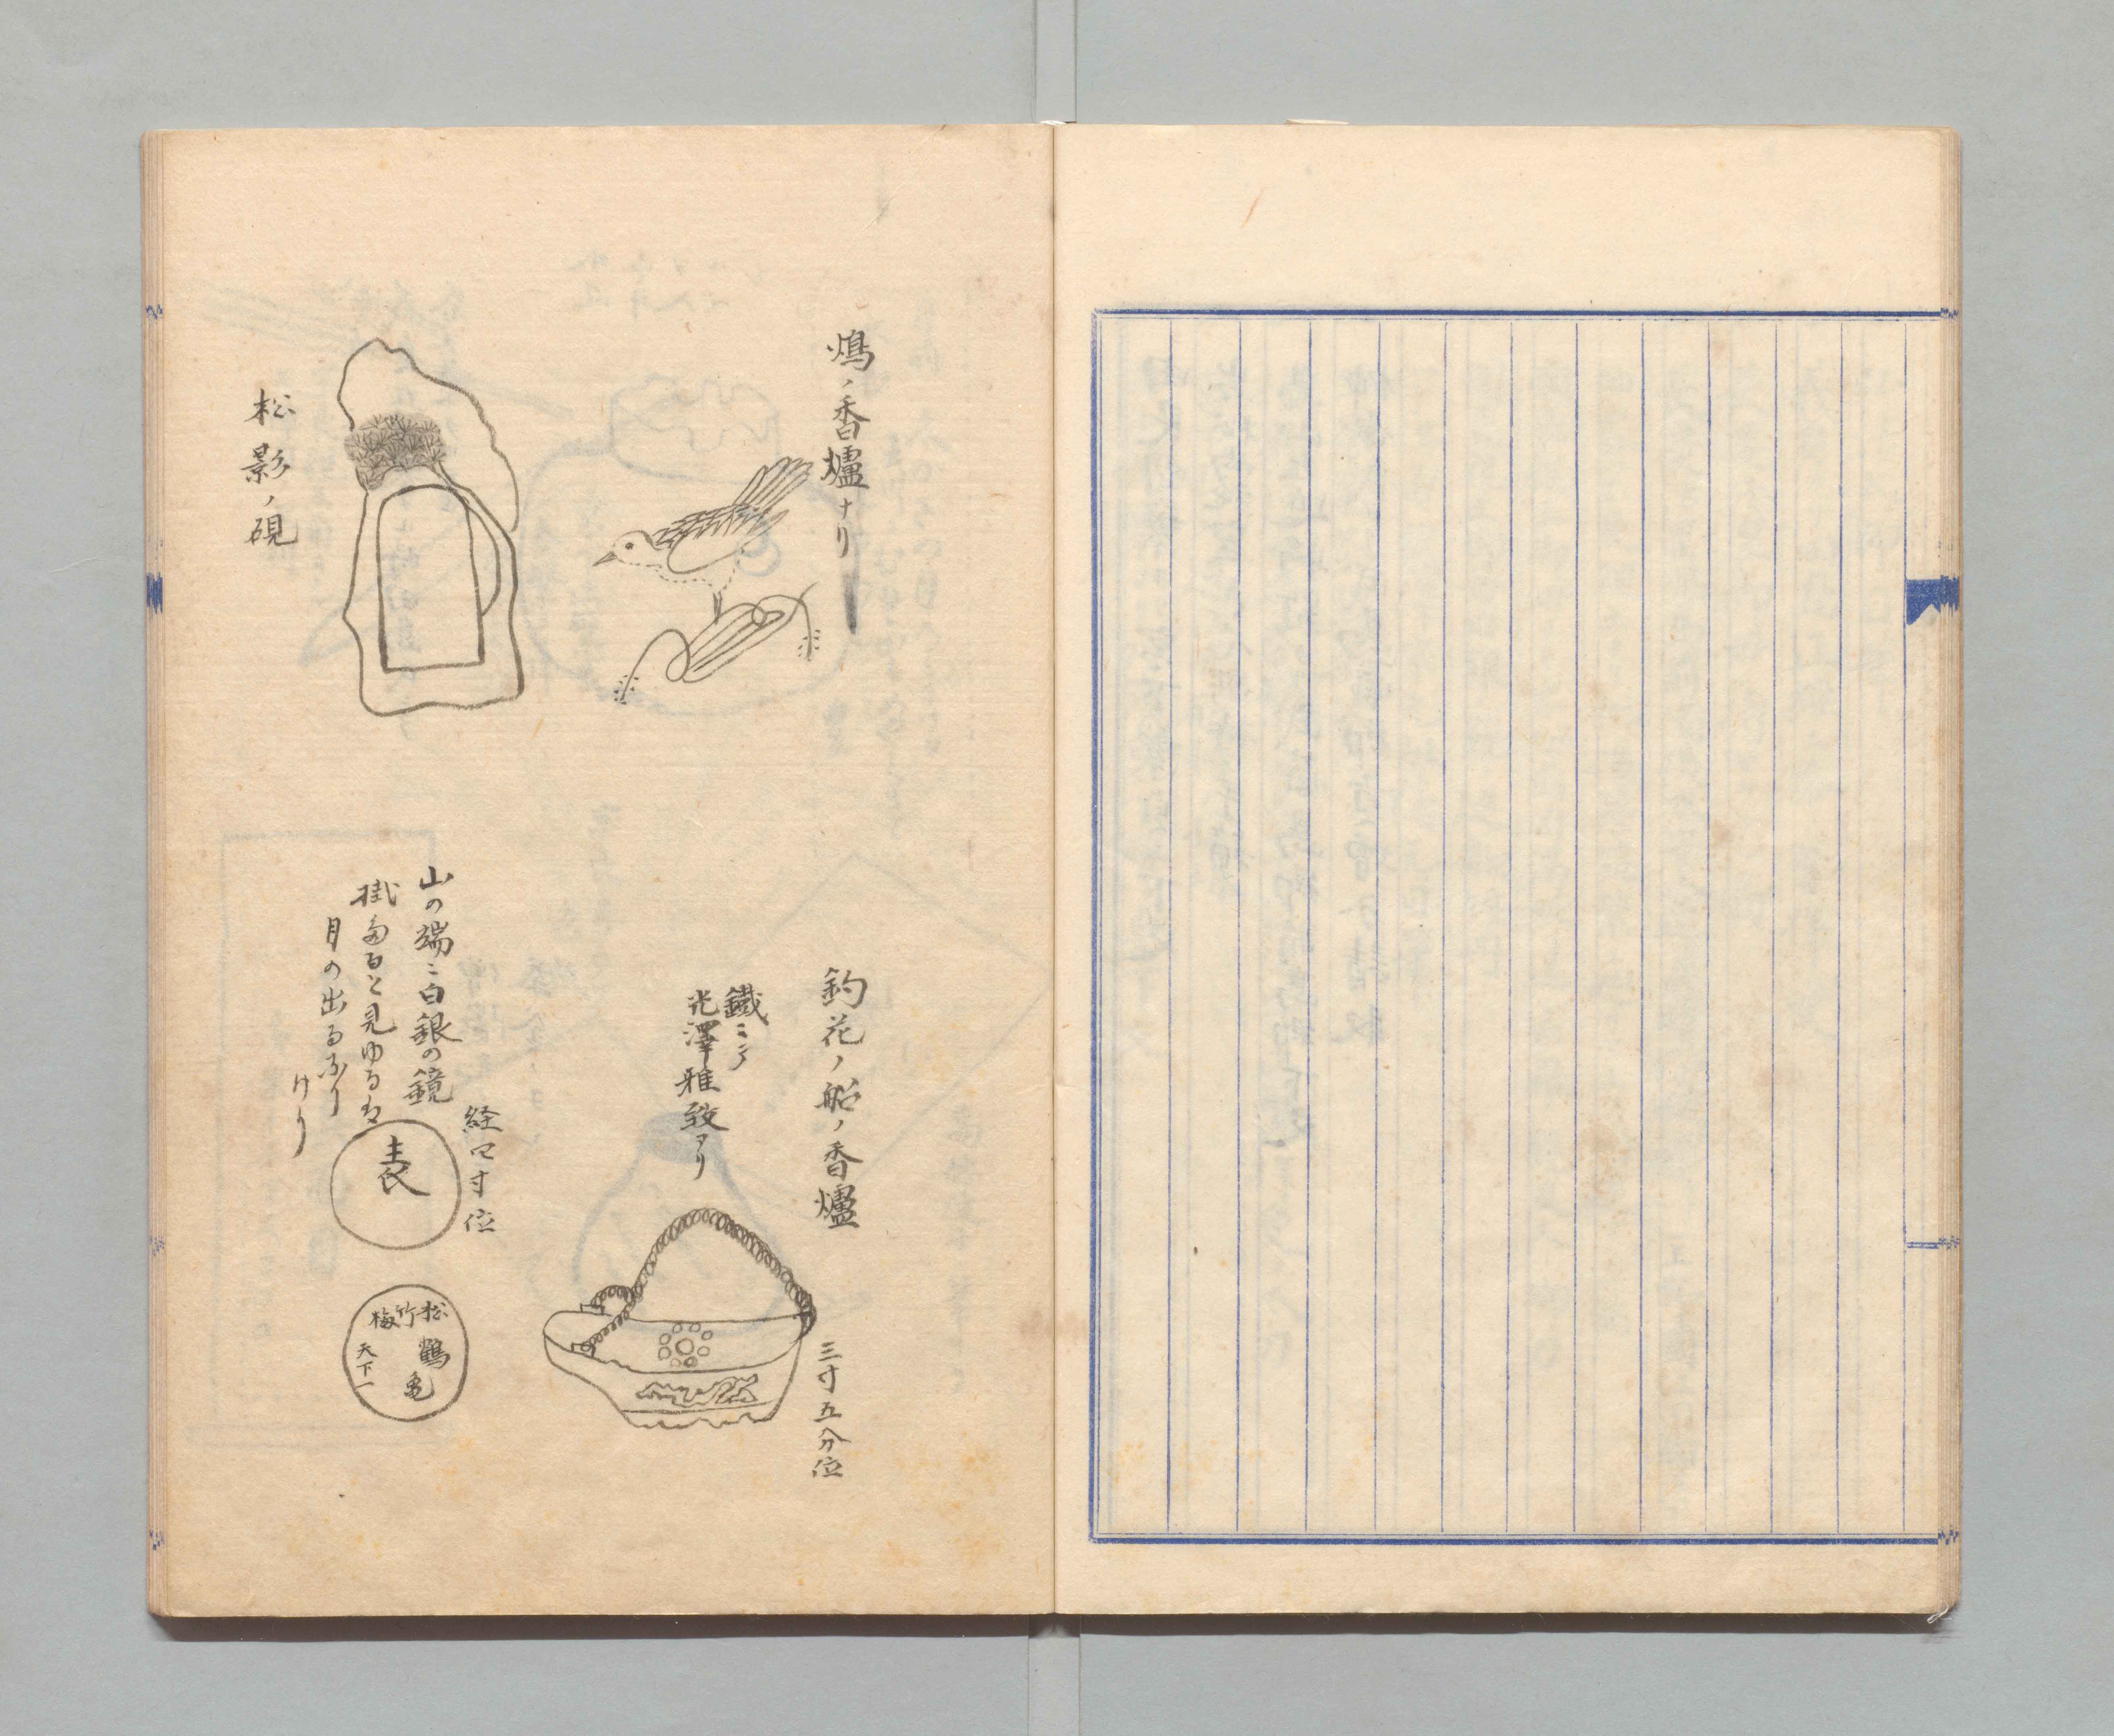 鳰ノ香爐ナリ
松影ノ硯
釣花ノ船ノ香爐
鐵ニテ
光澤雅致アリ
三寸五分位
経四寸位
山の端ニ白銀の鏡
掛たると見ゆるは
月の出るなり
けり
表
松竹梅
鶴亀
天下一